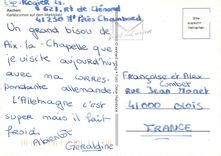 Exp: Rogier G.
621, rt de Clénord
Aachen
Karlsbrunnen auf dem Marktplatz
41250 Mt Près Chambord
Un grand bisou de
Aix-la-Chapelle que
je visite aujourd'hui
avec ma corres-
pondante allemande.
L'Allemagne c'est
super mais il fait
froid. A bientôt
Géraldine
Françoise et Alex
Combier
Rue Jean Monet
41000 BLOIS
FRANCE